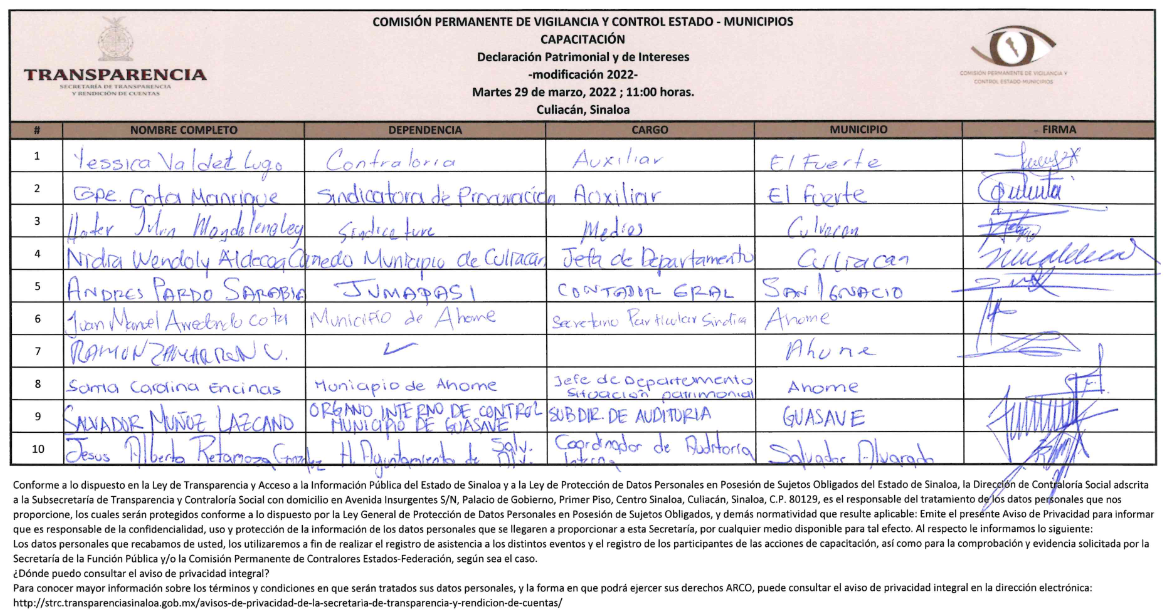 COMISIÓN PERMANENTE DE VIGILANCIA Y CONTROL ESTADO - MUNICIPIOS
CAPACITACIÓN
Declaración Patrimonial y de Intereses
-modificación 2022-
Martes 29 de marzo, 2022 ; 11:00 horas.
Culiacán, Sinaloa
TRANSPARENCIA
SECRETARÍA DE TRANSPARENCIA
Y RENDICIÓN DE CUENTAS
COMISIÓN PERMANENTE DE VIGILANCIA Y
CONTROL ESTADO-MUNICIPIOS
# NOMBRE COMPLETO DEPENDENCIA CARGO MUNICIPIO FIRMA
1 Yessica Valdez Lugo Contraloria Auxiliar El Fuerte
2 Gpe. Cota Manrique Sindicatora de Procuración Auxiliar El Fuerte
3 Julia Sindicatura Medios Culiacan
4 Nidia Wendoly Aldecoa Municipio de Culiacán Jefa de Departamento Culiacan
5 ANDRES PARDO SARABIA JUMAPASI CONTADOR GRAL SAN IGNACIO
6 Juan Manuel Arredondo Cota Municipio de Ahome Secretario Particular Sindica Ahome
7 RAMON ZAMARRON C. ✓ Ahome
8 Sarria Carolina Encinas Municipio de Ahome Jefe de Departamento situación patrimonial Ahome
9 SALVADOR MUÑOZ LAZCANO ORGANO INTERNO DE CONTROL MUNICIPIO DE GUASAVE SUBDIR. DE AUDITORIA GUASAVE
10 Jesus Alberto Retamoza Gonzalez H. Ayuntamiento de Salv. Alv. Coordinador de Auditoria Interna Salvador Alvarado
Conforme a lo dispuesto en la Ley de Transparencia y Acceso a la Información Pública del Estado de Sinaloa y a la Ley de Protección de Datos Personales en Posesión de Sujetos Obligados del Estado de Sinaloa, la Dirección de Contraloría Social adscrita
a la Subsecretaría de Transparencia y Contraloría Social con domicilio en Avenida Insurgentes S/N, Palacio de Gobierno, Primer Piso, Centro Sinaloa, Culiacán, Sinaloa, C.P. 80129, es el responsable del tratamiento de los datos personales que nos
proporcione, los cuales serán protegidos conforme a lo dispuesto por la Ley General de Protección de Datos Personales en Posesión de Sujetos Obligados, y demás normatividad que resulte aplicable: Emite el presente Aviso de Privacidad para informar
que es responsable de la confidencialidad, uso y protección de la información de los datos personales que se llegaren a proporcionar a esta Secretaría, por cualquier medio disponible para tal efecto. Al respecto le informamos lo siguiente:
Los datos personales que recabamos de usted, los utilizaremos a fin de realizar el registro de asistencia a los distintos eventos y el registro de los participantes de las acciones de capacitación, así como para la comprobación y evidencia solicitada por la
Secretaría de la Función Pública y/o la Comisión Permanente de Contralores Estados-Federación, según sea el caso.
¿Dónde puedo consultar el aviso de privacidad integral?
Para conocer mayor información sobre los términos y condiciones en que serán tratados sus datos personales, y la forma en que podrá ejercer sus derechos ARCO, puede consultar el aviso de privacidad integral en la dirección electrónica:
http://strc.transparenciasinaloa.gob.mx/avisos-de-privacidad-de-la-secretaria-de-transparencia-y-rendicion-de-cuentas/